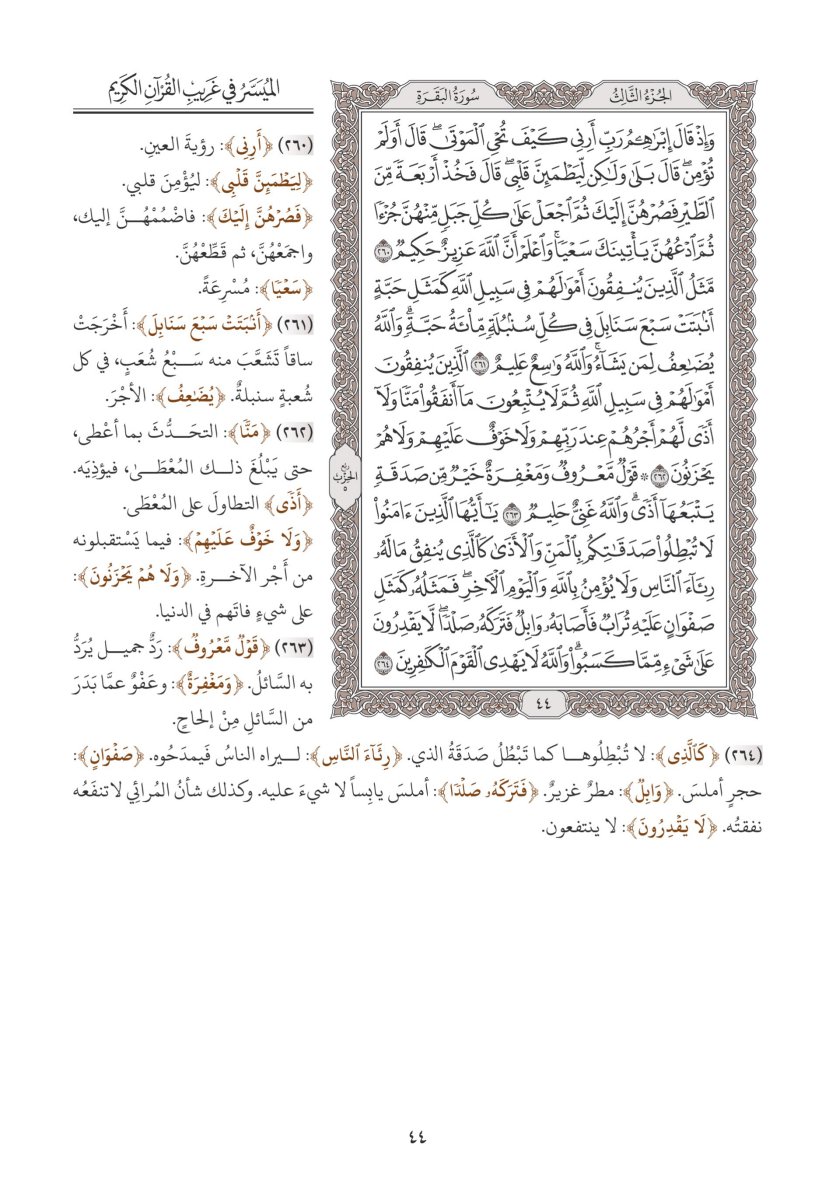 الجُزْءُ الثَّالِثُ
سُورَةُ البَقَرَةِ
وَإِذْ قَالَ إِبْرَٰهِـۧمُ رَبِّ أَرِنِى كَيْفَ تُحْىِ ٱلْمَوْتَىٰۖ قَالَ أَوَلَمْ
تُؤْمِنۖ قَالَ بَلَىٰ وَلَٰكِن لِّيَطْمَئِنَّ قَلْبِىۖ قَالَ فَخُذْ أَرْبَعَةً مِّنَ
ٱلطَّيْرِ فَصُرْهُنَّ إِلَيْكَ ثُمَّ ٱجْعَلْ عَلَىٰ كُلِّ جَبَلٍ مِّنْهُنَّ جُزْءًا
ثُمَّ ٱدْعُهُنَّ يَأْتِينَكَ سَعْيًاۚ وَٱعْلَمْ أَنَّ ٱللَّهَ عَزِيزٌ حَكِيمٌ ٢٦٠
مَّثَلُ ٱلَّذِينَ يُنفِقُونَ أَمْوَٰلَهُمْ فِى سَبِيلِ ٱللَّهِ كَمَثَلِ حَبَّةٍ
أَنۢبَتَتْ سَبْعَ سَنَابِلَ فِى كُلِّ سُنۢبُلَةٍ مِّا۟ئَةُ حَبَّةٍۗ وَٱللَّهُ
يُضَٰعِفُ لِمَن يَشَآءُۚ وَٱللَّهُ وَٰسِعٌ عَلِيمٌ ٢٦١ ٱلَّذِينَ يُنفِقُونَ
أَمْوَٰلَهُمْ فِى سَبِيلِ ٱللَّهِ ثُمَّ لَا يُتْبِعُونَ مَآ أَنفَقُوا۟ مَنًّا وَلَآ
أَذًىۙ لَّهُمْ أَجْرُهُمْ عِندَ رَبِّهِمْ وَلَا خَوْفٌ عَلَيْهِمْ وَلَا هُمْ
يَحْزَنُونَ ٢٦٢ ۞ قَوْلٌ مَّعْرُوفٌ وَمَغْفِرَةٌ خَيْرٌ مِّن صَدَقَةٍ
يَتْبَعُهَآ أَذًىۗ وَٱللَّهُ غَنِىٌّ حَلِيمٌ ٢٦٣ يَٰٓأَيُّهَا ٱلَّذِينَ ءَامَنُوا۟
لَا تُبْطِلُوا۟ صَدَقَٰتِكُم بِٱلْمَنِّ وَٱلْأَذَىٰ كَٱلَّذِى يُنفِقُ مَالَهُۥ
رِئَآءَ ٱلنَّاسِ وَلَا يُؤْمِنُ بِٱللَّهِ وَٱلْيَوْمِ ٱلْـَٔاخِرِۖ فَمَثَلُهُۥ كَمَثَلِ
صَفْوَانٍ عَلَيْهِ تُرَابٌ فَأَصَابَهُۥ وَابِلٌ فَتَرَكَهُۥ صَلْدًاۖ لَّا يَقْدِرُونَ
عَلَىٰ شَىْءٍ مِّمَّا كَسَبُوا۟ۗ وَٱللَّهُ لَا يَهْدِى ٱلْقَوْمَ ٱلْكَٰفِرِينَ ٢٦٤
٤٤
رُبْع
الحِزْبِ
٥
المُيَسَّرُ فِي غَرِيبِ القُرْآنِ الكَرِيمِ
(٢٦٠) ﴿أَرِنِى﴾: رؤيةَ العينِ.
﴿لِيَطْمَئِنَّ قَلْبِى﴾: ليُؤْمِنَ قلبي.
﴿فَصُرْهُنَّ إِلَيْكَ﴾: فاضْمُمْهُنَّ إليك،
واجمَعْهُنَّ، ثم قَطِّعْهُنَّ.
﴿سَعْيًا﴾: مُسْرِعَةً.
(٢٦١) ﴿أَنۢبَتَتْ سَبْعَ سَنَابِلَ﴾: أَخْرَجَتْ
ساقاً تَشَعَّبَ منه سَبْعُ شُعَبٍ، في كل
شُعبةٍ سنبلةٌ. ﴿يُضَٰعِفُ﴾: الأجْرَ.
(٢٦٢) ﴿مَنًّا﴾: التحَدُّثَ بما أعْطى،
حتى يَبْلُغَ ذلك المُعْطَىٰ، فيؤذِيَه.
﴿أَذًى﴾ التطاولَ على المُعْطَى.
﴿وَلَا خَوْفٌ عَلَيْهِمْ﴾: فيما يَسْتقبلونه
من أَجْر الآخرةِ. ﴿وَلَا هُمْ يَحْزَنُونَ﴾:
على شيءٍ فاتَهم في الدنيا.
(٢٦٣) ﴿قَوْلٌ مَّعْرُوفٌ﴾: رَدٌّ جميل يُرَدُّ
به السَّائلُ. ﴿وَمَغْفِرَةٌ﴾: وعَفْوٌ عمَّا بَدَرَ
من السَّائلِ مِنْ إلحاحٍ.
(٢٦٤) ﴿كَٱلَّذِى﴾: لا تُبْطِلُوها كما تَبْطُلُ صَدَقَةُ الذي. ﴿رِئَآءَ ٱلنَّاسِ﴾: ليراه الناسُ فَيمدَحُوه. ﴿صَفْوَانٍ﴾:
حجرٍ أملسَ. ﴿وَابِلٌ﴾: مطرٌ غزيرٌ. ﴿فَتَرَكَهُۥ صَلْدًا﴾: أملسَ يابِساً لا شيءَ عليه. وكذلك شأنُ المُرائِي لا تنفَعُه
نفقتُه. ﴿لَا يَقْدِرُونَ﴾: لا ينتفعون.
٤٤